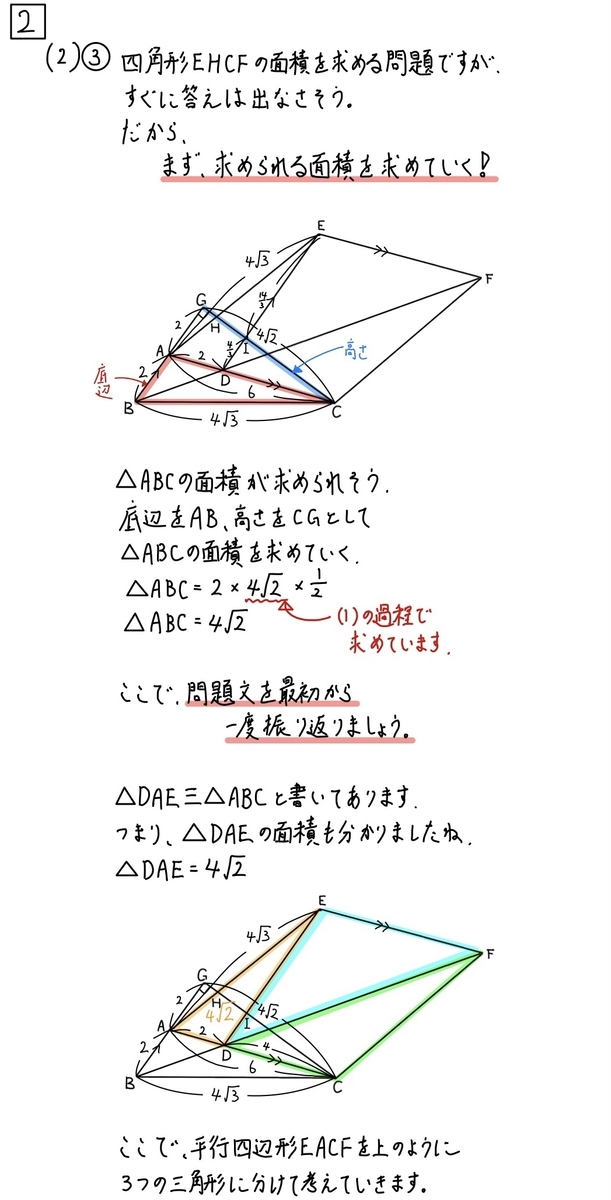 2
(2)③ 四角形EHCFの面積を求める問題ですが、
すぐに答えは出なさそう。
だから、
まず、求められる面積を求めていく!
E
F
4√3
G
2
H
14/3
4√2
I
4/3
高さ
A
2
D
底辺
2
6
B
C
4√3
△ABCの面積が求められそう.
底辺をAB、高さをCGとして
△ABCの面積を求めていく.
△ABC = 2 × 4√2 × 1/2
△ABC = 4√2
(1)の過程で
求めています.
ここで、問題文を最初から
一度振り返りましょう。
△DAE≡△ABCと書いてあります.
つまり、△DAEの面積も分かりましたね.
△DAE = 4√2
E
F
4√3
G
2
H
4√2
4√2
I
A
2
D
4
2
6
B
C
4√3
ここで、平行四辺形EACFを上のように
3つの三角形に分けて考えていきます。